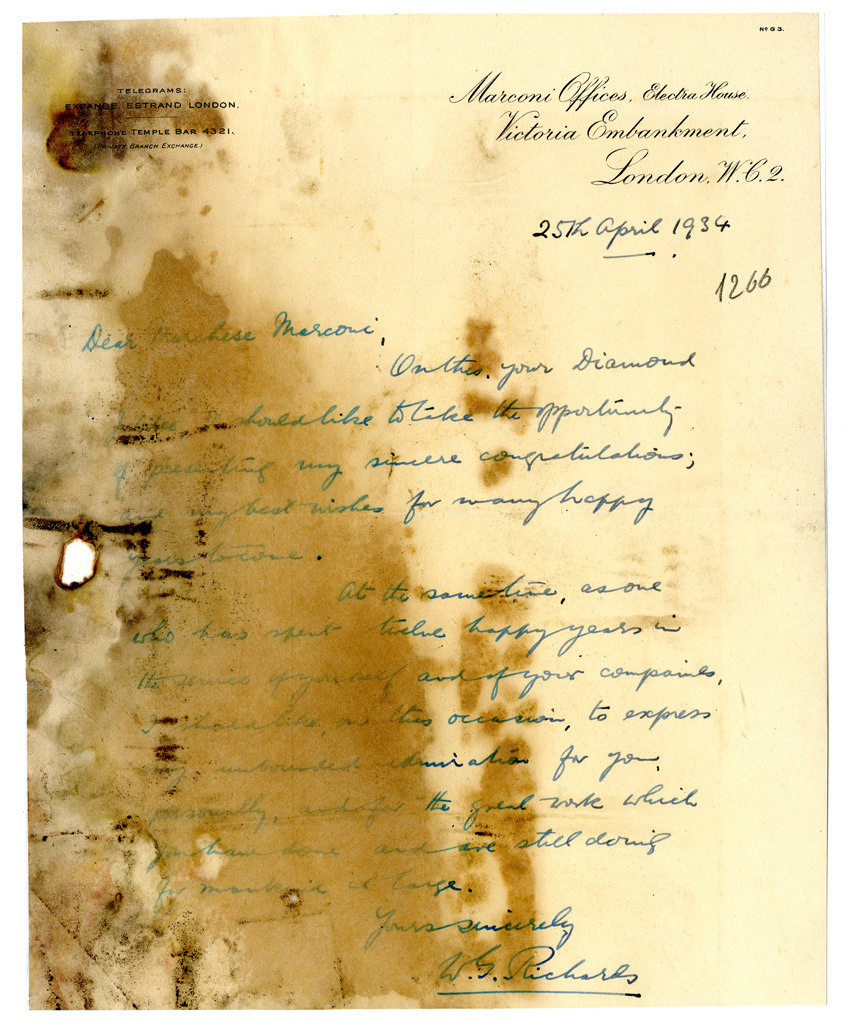 Nº G 3.
TELEGRAMS:
EXPANSE ESTRAND LONDON.
TELEPHONE TEMPLE BAR 4321.
(PRIVATE BRANCH EXCHANGE.)
Marconi Offices, Electra House,
Victoria Embankment,
London, W.C.2.
25th April 1934
1266
Dear Marchese Marconi,
On this, your Diamond
Jubilee, I should like to take the opportunity
of presenting my sincere congratulations;
and my best wishes for many happy
years to come.
At the same time, as one
who has spent twelve happy years in
the service of yourself and of your companies,
I should like, on this occasion, to express
my unbounded admiration for you,
personally, and for the great work which
you have done and are still doing
for mankind at large.
Yours sincerely
W. G. Richards